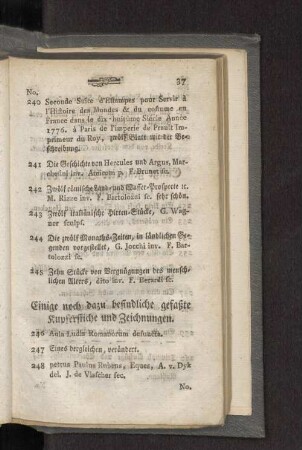 37
No.
240 Seconde Suite d'Estampes pour Servir à
l'Histoire des Modes & du costume en
France dans le dix-huitieme Siécle Année
1776. à Paris de l'Imperie de Prault Im-
primeur du Roy, zwölf Blatt mit der Be-
schreibung.
241 Die Geschichte von Hercules und Argus, Mar-
inv. p. F. Brunet sc.
242 Zwölf römische Land- und Wasser-Prospecte ꝛc.
M. Ricco inv. F. Bartolozzi sc. sehr schön.
243 Zwölf italiänische Hirten-Stücke, G. Wag-
ner sculps.
244 Die zwölf Monaths-Zeiten, in ländlichen Ge-
genden vorgestellet, G. Zocchi inv. F. Bar-
tolozzi sc.
245 Zehn Stücke von Vergnügungen des mensch-
lichen Alters, dito inv. F. Berardi sc.
Einige noch dazu befindliche gefaßte
Kupferstiche und Zeichnungen.
246 Aula Ludis Romanorum defuncta.
247 Eines dergleichen, verändert.
248 petrus Paulus Rubens, Eques, A. v. Dyk
del. J. de Visscher sec.
No.